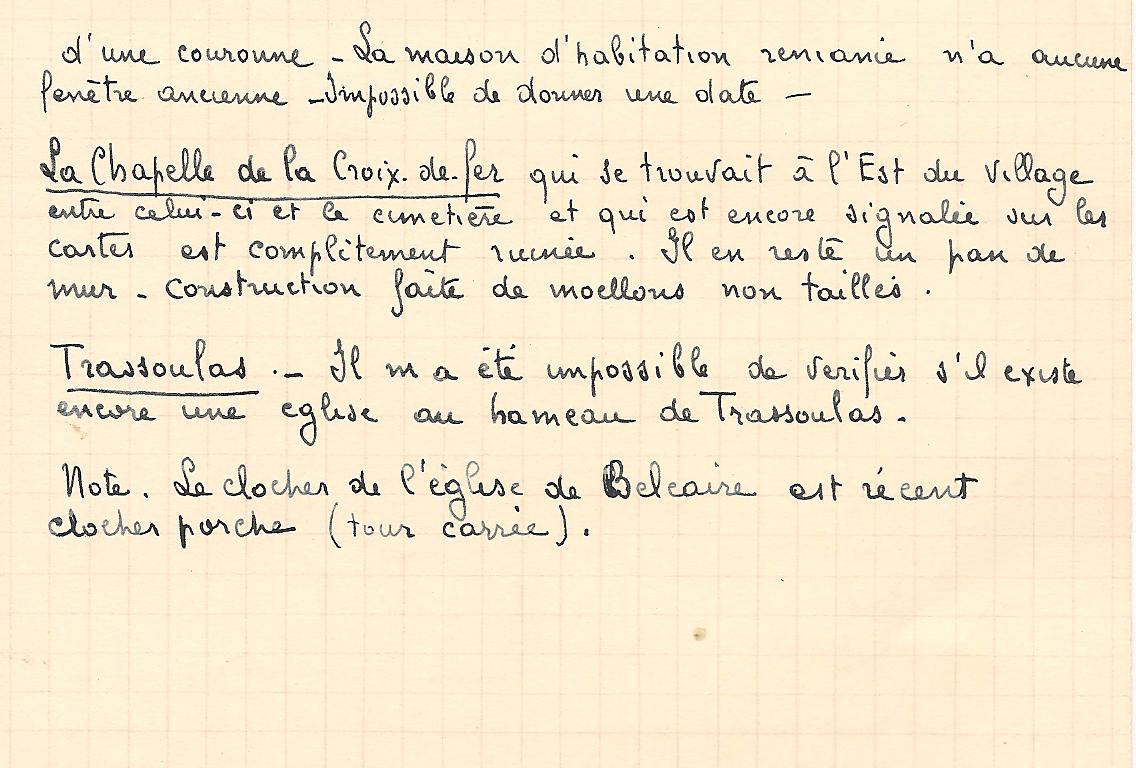 d'une couronne - La maison d'habitation remaniée n'a aucune
fenêtre ancienne - Impossible de donner une date —
La Chapelle de la Croix-de-fer qui se trouvait à l'Est du village
entre celui-ci et le cimetière et qui est encore signalée sur les
cartes est complètement ruinée. Il en reste un pan de
mur - construction faite de moellons non taillés.
Trassoulas .- Il m'a été impossible de vérifier s'il existe
encore une église au hameau de Trassoulas.
Note. Le clocher de l'église de Belcaire est récent
clocher porche (tour carrée).